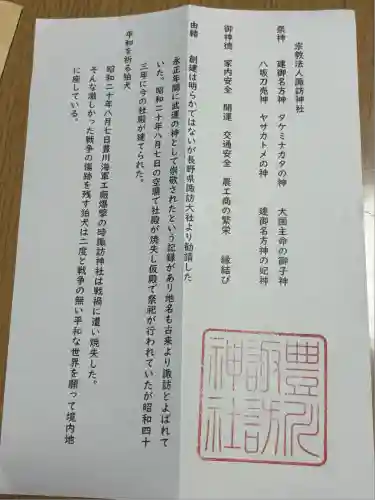 宗教法人諏訪神社
祭神　建御名方神　タケミナカタの神　大国主命の御子神
八坂刀売神　ヤサカトメの神　建御名方神の妃神
御神徳　家内安全　開運　交通安全　農工商の繁栄　縁結び
由緒　創建は明らかではないが長野県諏訪大社より勧請した
永正年間に武運の神として崇敬されたという記録があり地名も古来より諏訪とよばれて
いた。昭和二十年八月七日の空襲で社殿が焼失し仮殿で祭祀が行われていたが昭和四十
三年に今の社殿が建てられた。
平和を祈る狛犬
昭和二十年八月七日豊川海軍工廠爆撃の時諏訪神社は戦禍に遭い焼失した。
そんな激しかった戦争の傷跡を残す狛犬は二度と戦争の無い平和な世界を願って境内地
に座している。
豊川
諏訪
神社